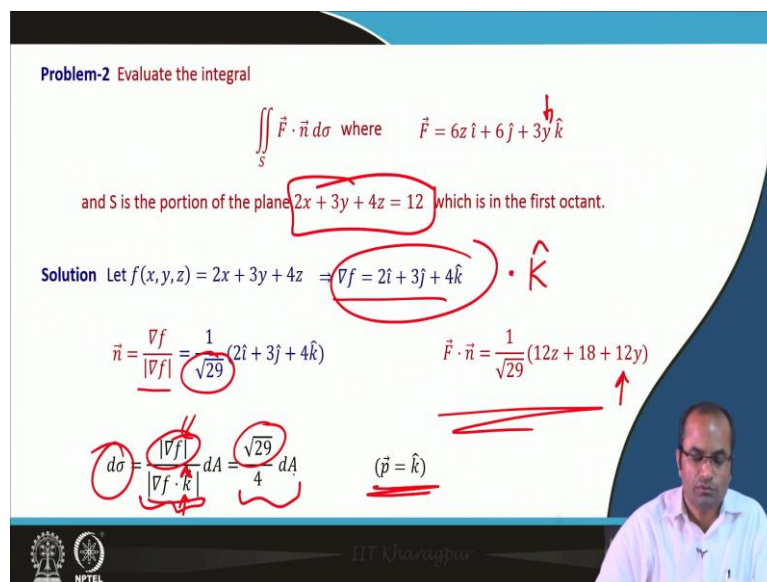 Problem-2 Evaluate the integral
∬_S F⃗ · n⃗ dσ where F⃗ = 6z î + 6 ĵ + 3y k̂
and S is the portion of the plane 2x + 3y + 4z = 12 which is in the first octant.
Solution Let f(x, y, z) = 2x + 3y + 4z ⇒ ∇f = 2î + 3ĵ + 4k̂ · k̂
n⃗ = ∇f / |∇f| = 1/√29 (2î + 3ĵ + 4k̂) F⃗ · n⃗ = 1/√29 (12z + 18 + 12y)
dσ = |∇f| / |∇f · k̂| dA = √29/4 dA (p⃗ = k̂)
IIT Kharagpur
NPTEL